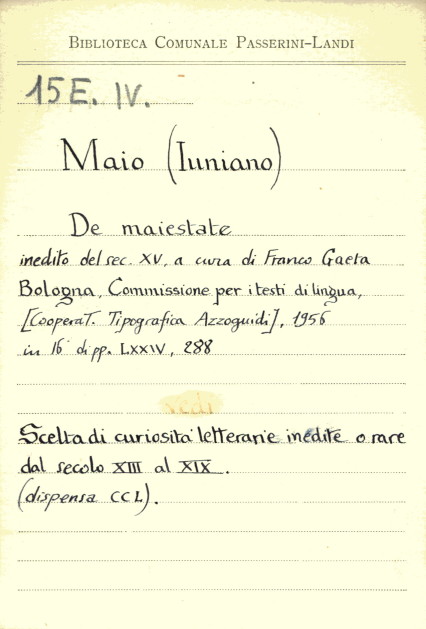 BIBLIOTECA COMUNALE PASSERINI-LANDI
15 E. IV.
Maio (Iuniano)
De maiestate
inedito del sec. XV, a cura di Franco Gaeta
Bologna, Commissione per i testi di lingua,
[Cooperat. Tipografica Azzoguidi], 1956
in 16° di pp. LXXIV, 288
vedi
Scelta di curiosità letterarie inedite o rare
dal secolo XIII al XIX.
(dispensa CCL).